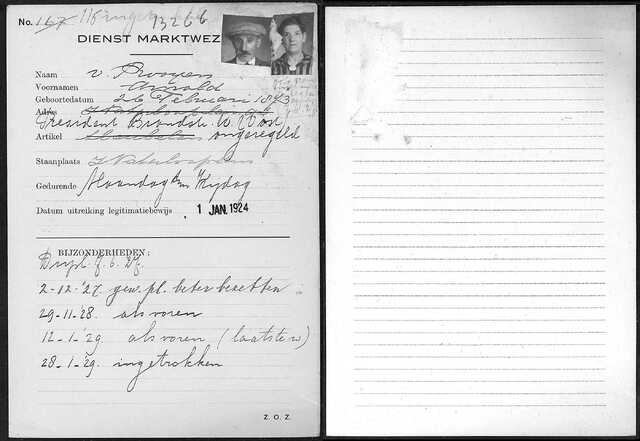 No. 167. 13266
DIENST MARKTWEZ
Naam v. Prooyen
Voornamen Arnold
Geboortedatum 26 Februari 1873
Adres
President Brandstr. 10 Oost
Artikel ongeregeld
Staanplaats Waterlooplein
Gedurende Maandag t/m Vrijdag
Datum uitreiking legitimatiebewijs 1 JAN. 1924
BIJZONDERHEDEN:
Dupl. 8.6.27.
2-12-'27. gew. pl. beter bezetten
29-11-'28. als voren
12-1-'29 als voren (laatste w)
28-1-'29. ingetrokken
Z. O. Z.